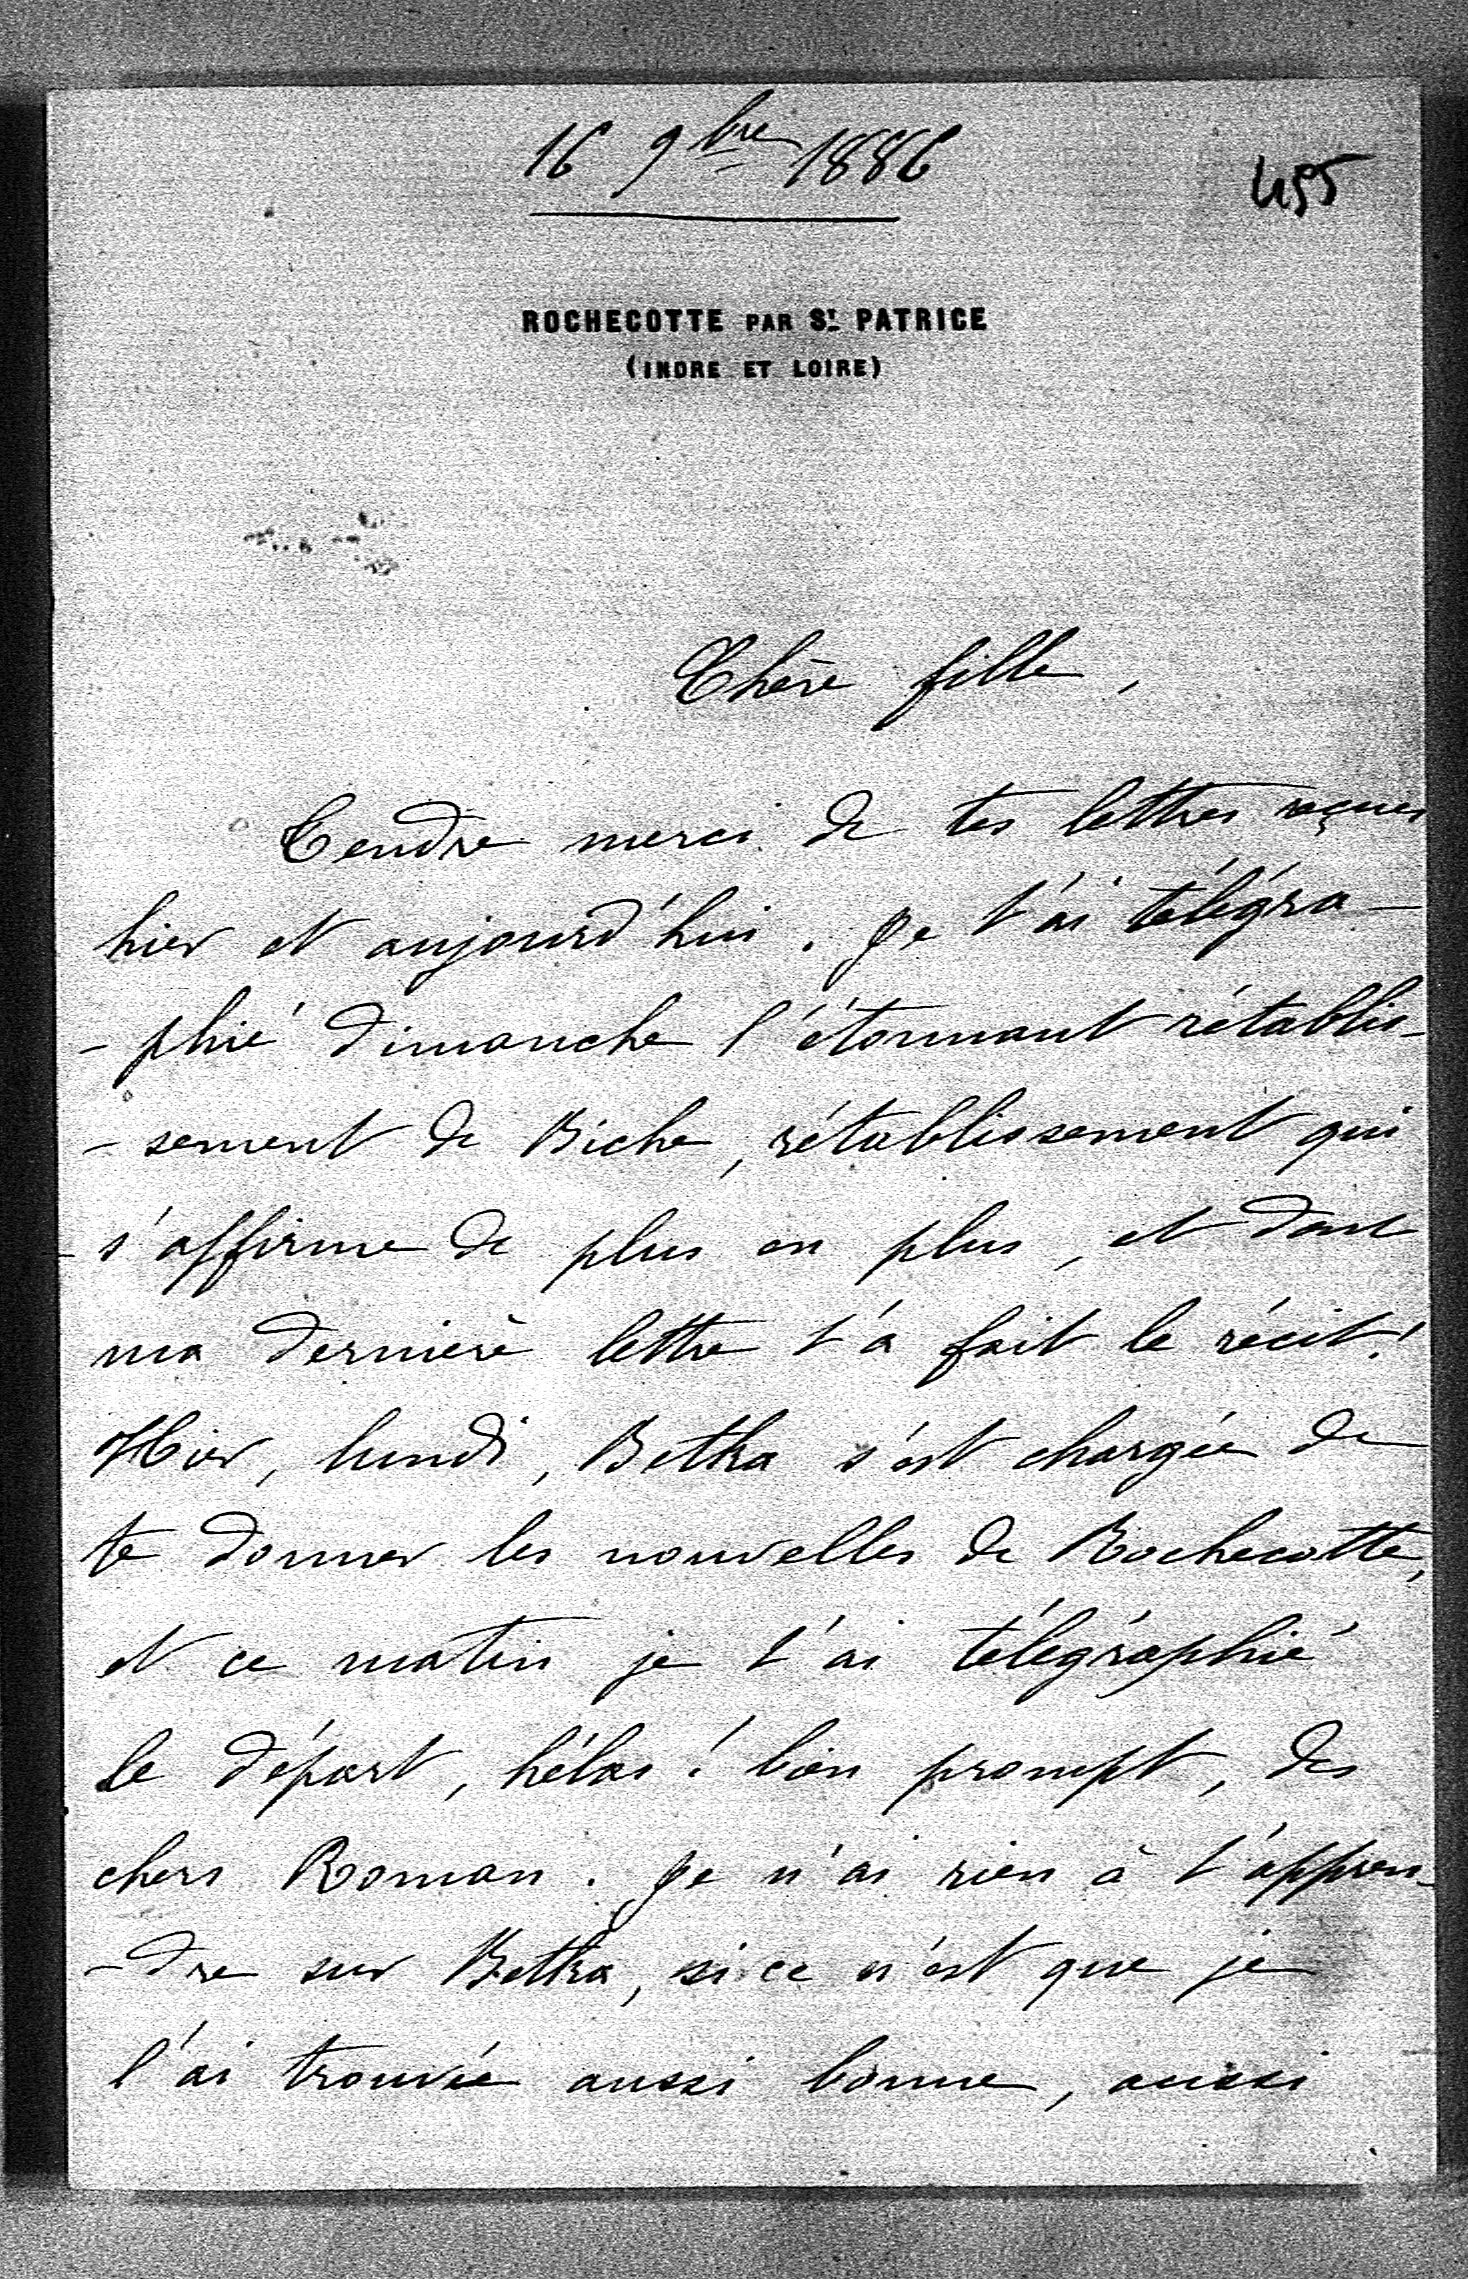 16 9bre 1886
455
ROCHECOTTE PAR ST. PATRICE
(INDRE ET LOIRE)
Chère fille,
Tendre merci de tes lettres reçues
hier et aujourd'hui. Je t'ai télégra-
-phié dimanche l'étonnant rétablis-
-sement de Biche, rétablissement qui
s'affirme de plus en plus, et dont
ma dernière lettre t'a fait le récit!
Hier, lundi, Betka s'est chargée de
te donner les nouvelles de Rochecotte,
et ce matin je t'ai télégraphié
le départ, hélas! bien prompt, des
chers Roman. Je n'ai rien à t'appren-
-dre sur Betka, si ce n'est que je
l'ai trouvée aussi bonne, aussi